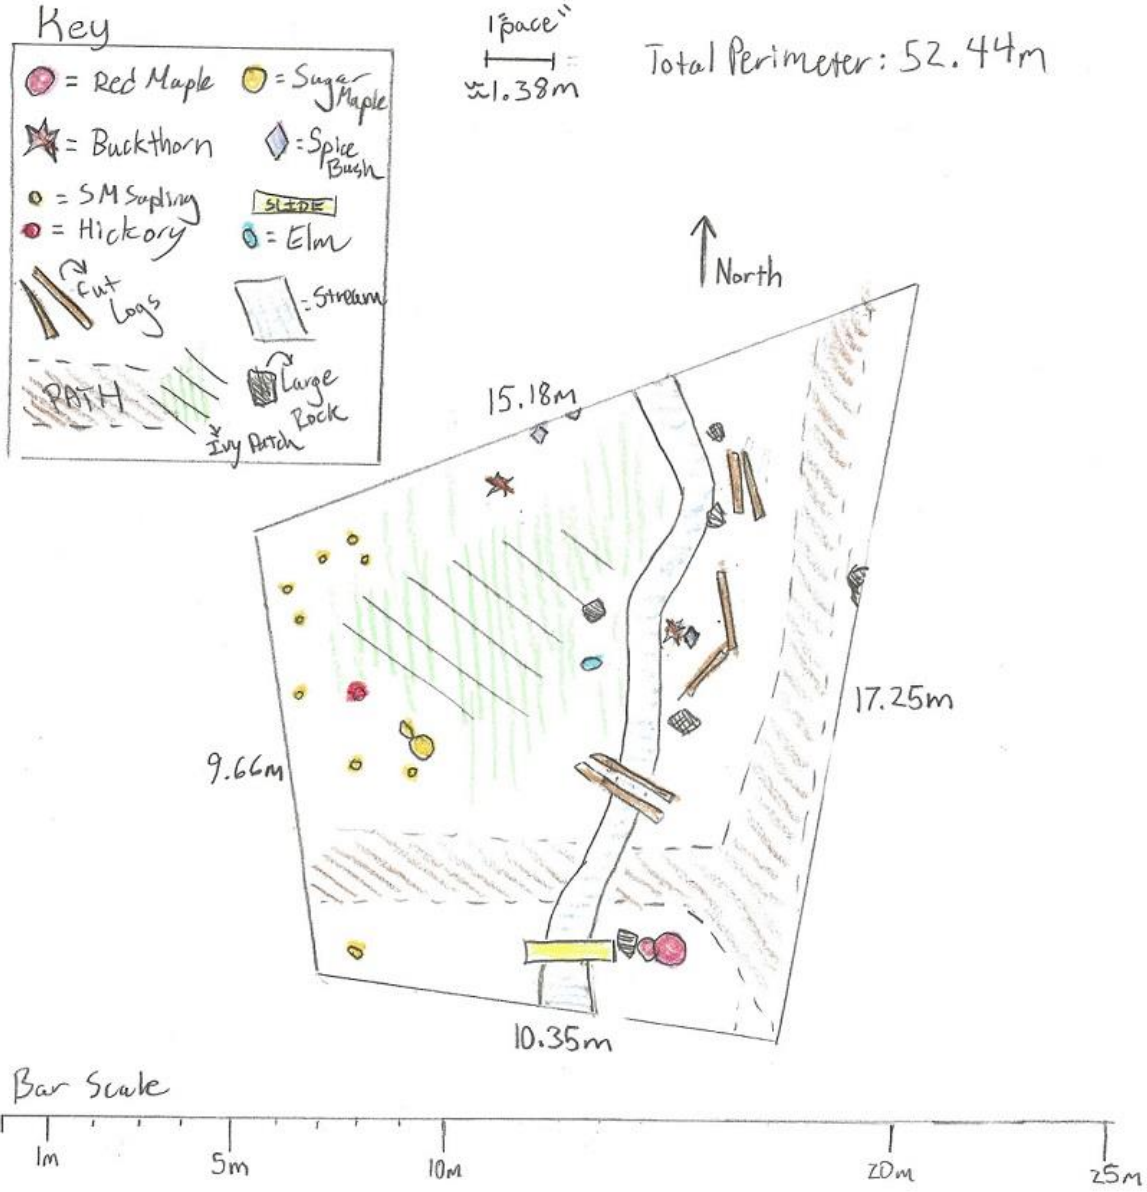 Key
= Red Maple
= Sugar Maple
= Buckthorn
= Spice Bush
= SM Sapling
SLIDE
= Hickory
= Elm
Cut Logs
= Stream
PATH
Ivy Patch
Large Rock
1 "pace"
≈1.38m
Total Perimeter: 52.44m
North
15.18m
17.25m
9.66m
10.35m
Bar Scale
1m 5m 10m 20m 25m